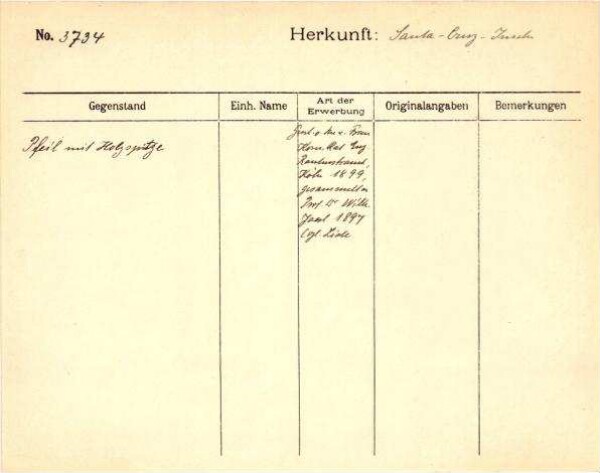 No. 3734
Herkunft: Santa-Cruz-Inseln
Gegenstand
Einh. Name
Art der
Erwerbung
Originalangaben
Bemerkungen
Pfeil mit Holzspitze
Frau
Rautenstrauch,
Köln 1899,
gesammelt v.
Prof. Dr Wilh.
Joest 1897